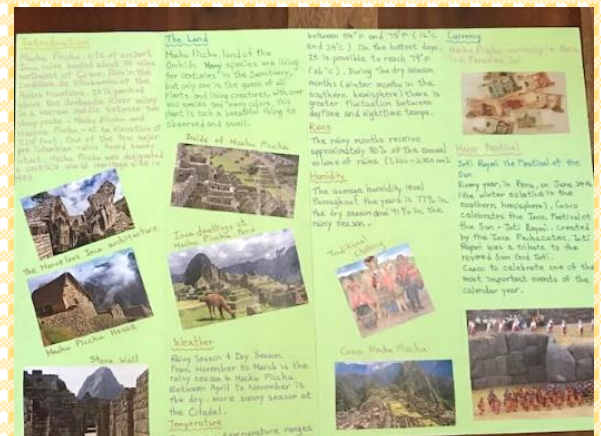 Introduction
Machu Picchu, site of ancient
Inca ruins located about 50 miles
northwest of Cuzco, Peru in the
Cordillera de Vilcabamba of the
Andes Mountains. It is perched
above the Urubamba River valley
in a narrow saddle between two
sharp peaks - Machu Picchu and
Huayna Picchu - at an elevation of
7,710 feet. One of the few major
pre Columbian ruins found nearly
intact, Machu Picchu was designated
a UNESCO World Heritage site in
1983.
The Marvelous Inca architecture
Machu Picchu House
Stone Wall
The Land
Machu Picchu, land of the
Orchids. Many species are living
for centuries in the Sanctuary,
but only one is the queen of all
plants and living creatures, with over
species and many colors, this
plant is such a beautiful thing to
observed and smell.
Inside of Machu Picchu
Inca dwellings at
Machu Picchu, Peru
Weather
Rainy Season & Dry Season
From November to March is the
rainy season in Machu Picchu
Between April to November is
the dry, more sunny season at
the Citadel.
Temperature
temperature ranges
between 54°F and 75°F (12°C
and 24°C). On the hottest days,
It is possible to reach 79°F
(26°C). During the dry season
months (winter months in the
southern hemisphere) there is
greater fluctuation between
daytime and nighttime temps.
Rains
The rainy months receive
approximately 80% of the annual
volume of rains
Humidity
The average humidity level
throughout the years is 77% in
the dry season and 91% in the
rainy season.
Traditional Clothing
Cusco Machu Picchu
Currency
Machu Picchu currency is
Peruvian Sol
Major Festival
Inti Raymi The Festival of the
Sun
Every year in Peru, on June 24th
(the winter solstice in the
southern hemisphere), Cusco
celebrates the Inca Festival of
the Sun - Inti Raymi. Created
by the Inca Pachacutec, Inti
Raymi was a tribute to the
revered Sun God Inti.
Cusco to celebrate one of the
most important events of the
calendar year.